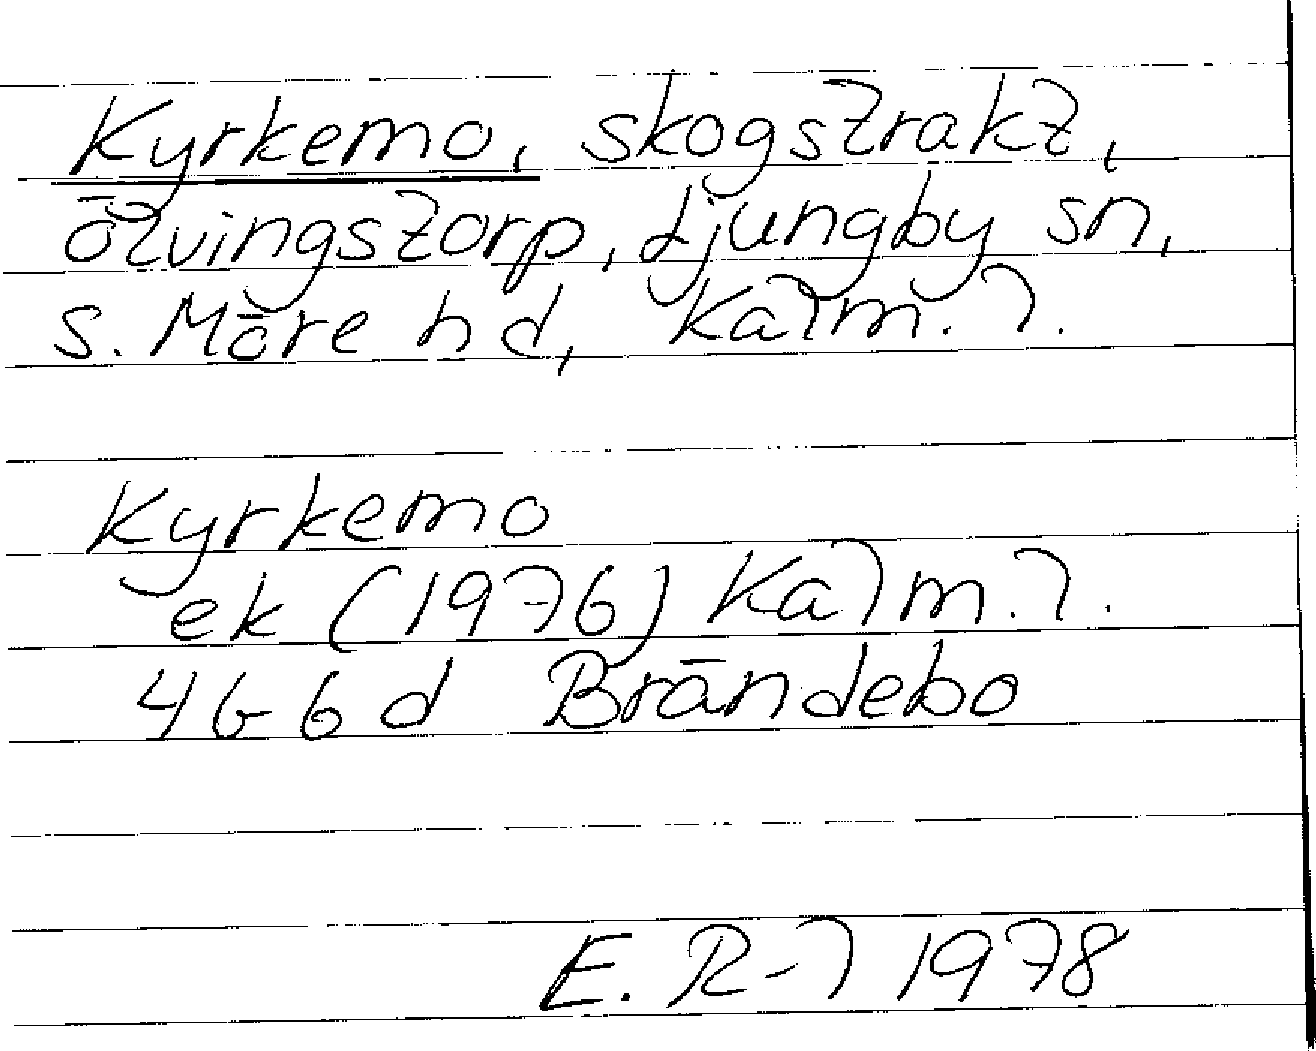 Kyrkemo, skogstrakt,
ölvingstorp, Ljungby sn,
S. Möre hd, Kalm. l.
Kyrkemo
ek (1976) Kalm. l.
4G 6d Brändebo
E. R-l 1978